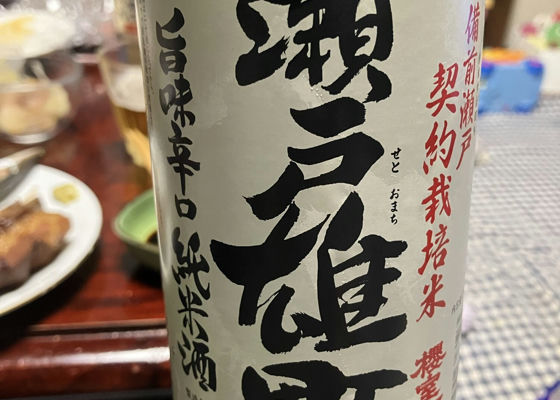 備前瀬戸
契約栽培米
櫻室
瀬戸雄町
せと おまち
旨味辛口純米酒